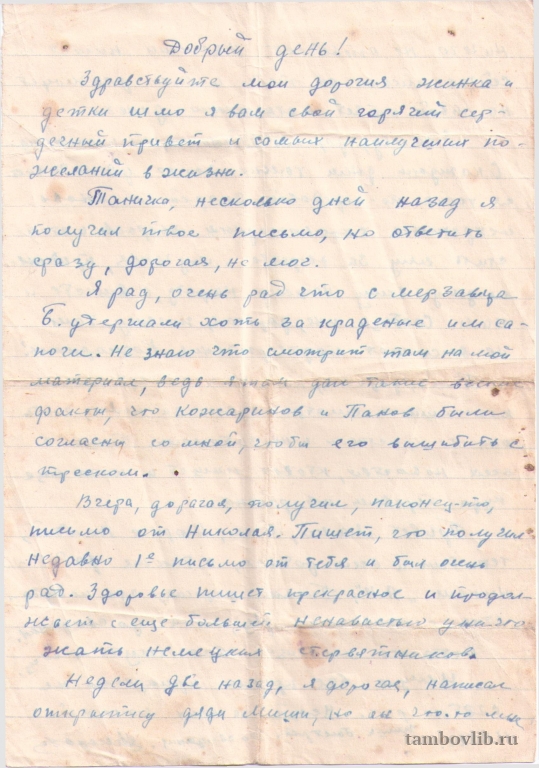 Добрый день!
Здравствуйте мои дорогия жинка и
детки шлю я вам свой горячий сер-
дечный привет и самых наилучших по-
желаний в жизни.
Таничка, несколько дней назад я
получил твое письмо, но ответить
сразу, дорогая, не мог.
Я рад, очень рад что с мерзавца
Б. удержали хоть за краденые им са-
поги. Не знаю что смотрит там на мой
материал, ведь я там дал такие
факты, что Кожаринов и Панов были
согласны со мной, чтобы его вышибить с
треском.
Вчера, дорогая, получил, наконец-то,
письмо от Николая. Пишет, что получил
недавно 1е письмо от тебя и был очень
рад. Здоровье пишет прекрасное и продол-
жает с еще большей ненавистью уничто
жать немецких стервятников.
Недели две назад, я дорогая, написал
открытку дяди Миши, но он что-то
tambovlib.ru